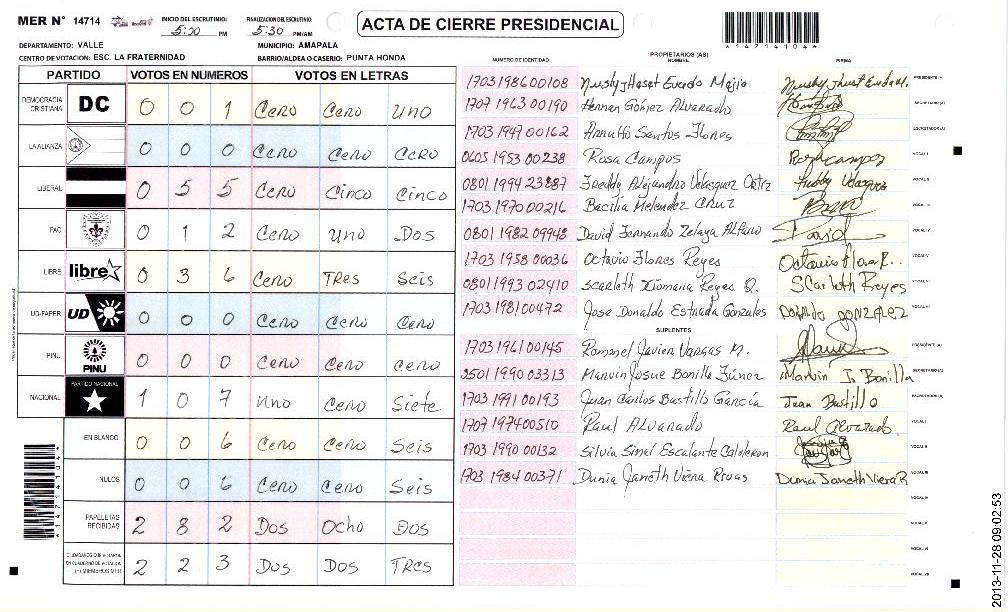 MER N° 14714
INICIO DEL ESCRUTINIO:
5:20 PM
FINALIZACION DEL ESCRUTINIO:
5:30 PM/AM
ACTA DE CIERRE PRESIDENCIAL
147141044
DEPARTAMENTO: VALLE
MUNICIPIO: AMAPALA
CENTRO DE VOTACION: ESC. LA FRATERNIDAD
BARRIO/ALDEA O CASERIO: PUNTA HONDA
PARTIDO VOTOS EN NUMEROS VOTOS EN LETRAS
DEMOCRACIA CRISTIANA DC 0 0 1 Cero Cero Uno
LA ALIANZA 0 0 0 Cero Cero Cero
LIBERAL 0 5 5 Cero Cinco Cinco
PAC 0 1 2 Cero Uno Dos
LIBRE libre 0 3 6 Cero Tres Seis
UD-FAPER UD 0 0 0 Cero Cero Cero
PINU PINU 0 0 0 Cero Cero Cero
NACIONAL PARTIDO NACIONAL 1 0 7 Uno Cero Siete
EN BLANCO 0 0 6 Cero Cero Seis
NULOS 0 0 6 Cero Cero Seis
PAPELETAS RECIBIDAS 2 8 2 Dos Ocho Dos
CIUDADANOS QUE VOTARON EN CUADERNO DE VOTACION (+) MIEMBROS MER 2 2 3 Dos Dos Tres
NUMERO DE IDENTIDAD PROPIETARIOS (AS) NOMBRE FIRMA
1703198600108 PRESIDENTE (A)
1707196300190 Hernan Gómez Alvarado SECRETARIO (A)
1703194700162 Santos Flores ESCRUTADOR (A)
0605195300238 Rosa Campos Rosa campos VOCAL I
0801199423887 Freddy Alejandro Velasquez Ortiz VOCAL II
1703197000216 Bacilia Melendez Cruz VOCAL III
0801198209948 David Fernando Zelaya Alfaro David VOCAL IV
1703195800036 Octavio Flores Reyes Octavio Flores R. VOCAL V
0801199302410 Scarleth Xiomara Reyes Q. Scarleth Reyes VOCAL VI
1703198100472 Jose Donaldo Estrada Gonzales VOCAL VII
SUPLENTES
1703196100145 Rommel Javier Vargas M. PRESIDENTE (A)
2501199003313 Marvin Josue Bonilla Fúnez Marvin J. Bonilla SECRETARIO (A)
1703199100193 Juan Carlos Bustillo García Juan Bustillo ESCRUTADOR (A)
1707197400510 Raul Alvarado Raul Alvarado. VOCAL I
1703199000132 Silvia Simei Escalante Calderon VOCAL II
1703198400371 Dunia Janeth Viera Rivas Dunia Janeth Viera R VOCAL III
VOCAL IV
VOCAL V
VOCAL VI
VOCAL VII
2013-11-28 09:02:53